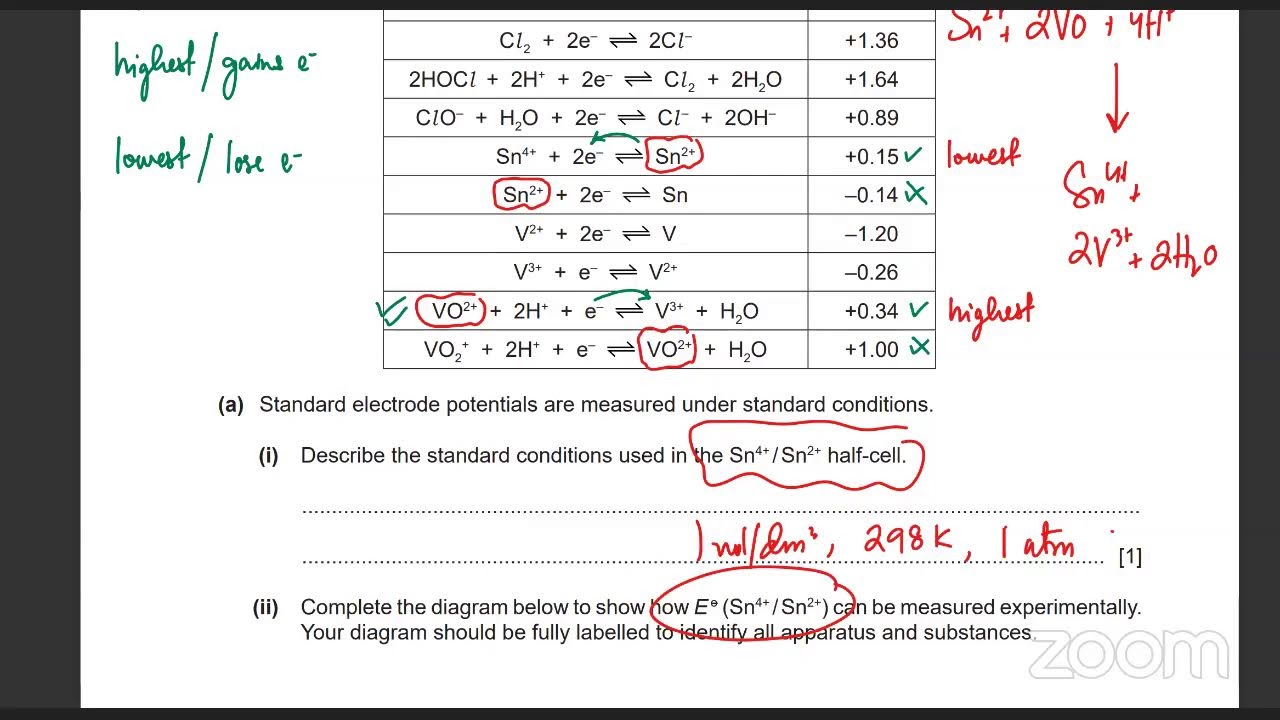 Sn²⁺ + 2VO + 4H⁺
highest / gains e⁻
Cl₂ + 2e⁻ ⇌ 2Cl⁻ +1.36
2HOCl + 2H⁺ + 2e⁻ ⇌ Cl₂ + 2H₂O +1.64
ClO⁻ + H₂O + 2e⁻ ⇌ Cl⁻ + 2OH⁻ +0.89
lowest / lose e⁻
Sn⁴⁺ + 2e⁻ ⇌ Sn²⁺ +0.15 ✓ lowest
Sn²⁺ + 2e⁻ ⇌ Sn –0.14 ✗
Sn⁴⁺ +
V²⁺ + 2e⁻ ⇌ V –1.20
2V³⁺ + 2H₂O
V³⁺ + e⁻ ⇌ V²⁺ –0.26
✓ VO²⁺ + 2H⁺ + e⁻ ⇌ V³⁺ + H₂O +0.34 ✓ highest
VO₂⁺ + 2H⁺ + e⁻ ⇌ VO²⁺ + H₂O +1.00 ✗
(a) Standard electrode potentials are measured under standard conditions.
(i) Describe the standard conditions used in the Sn⁴⁺/Sn²⁺ half-cell.
1 mol/dm³, 298K, 1 atm [1]
(ii) Complete the diagram below to show how E⦵ (Sn⁴⁺/Sn²⁺) can be measured experimentally.
Your diagram should be fully labelled to identify all apparatus and substances.
zoom